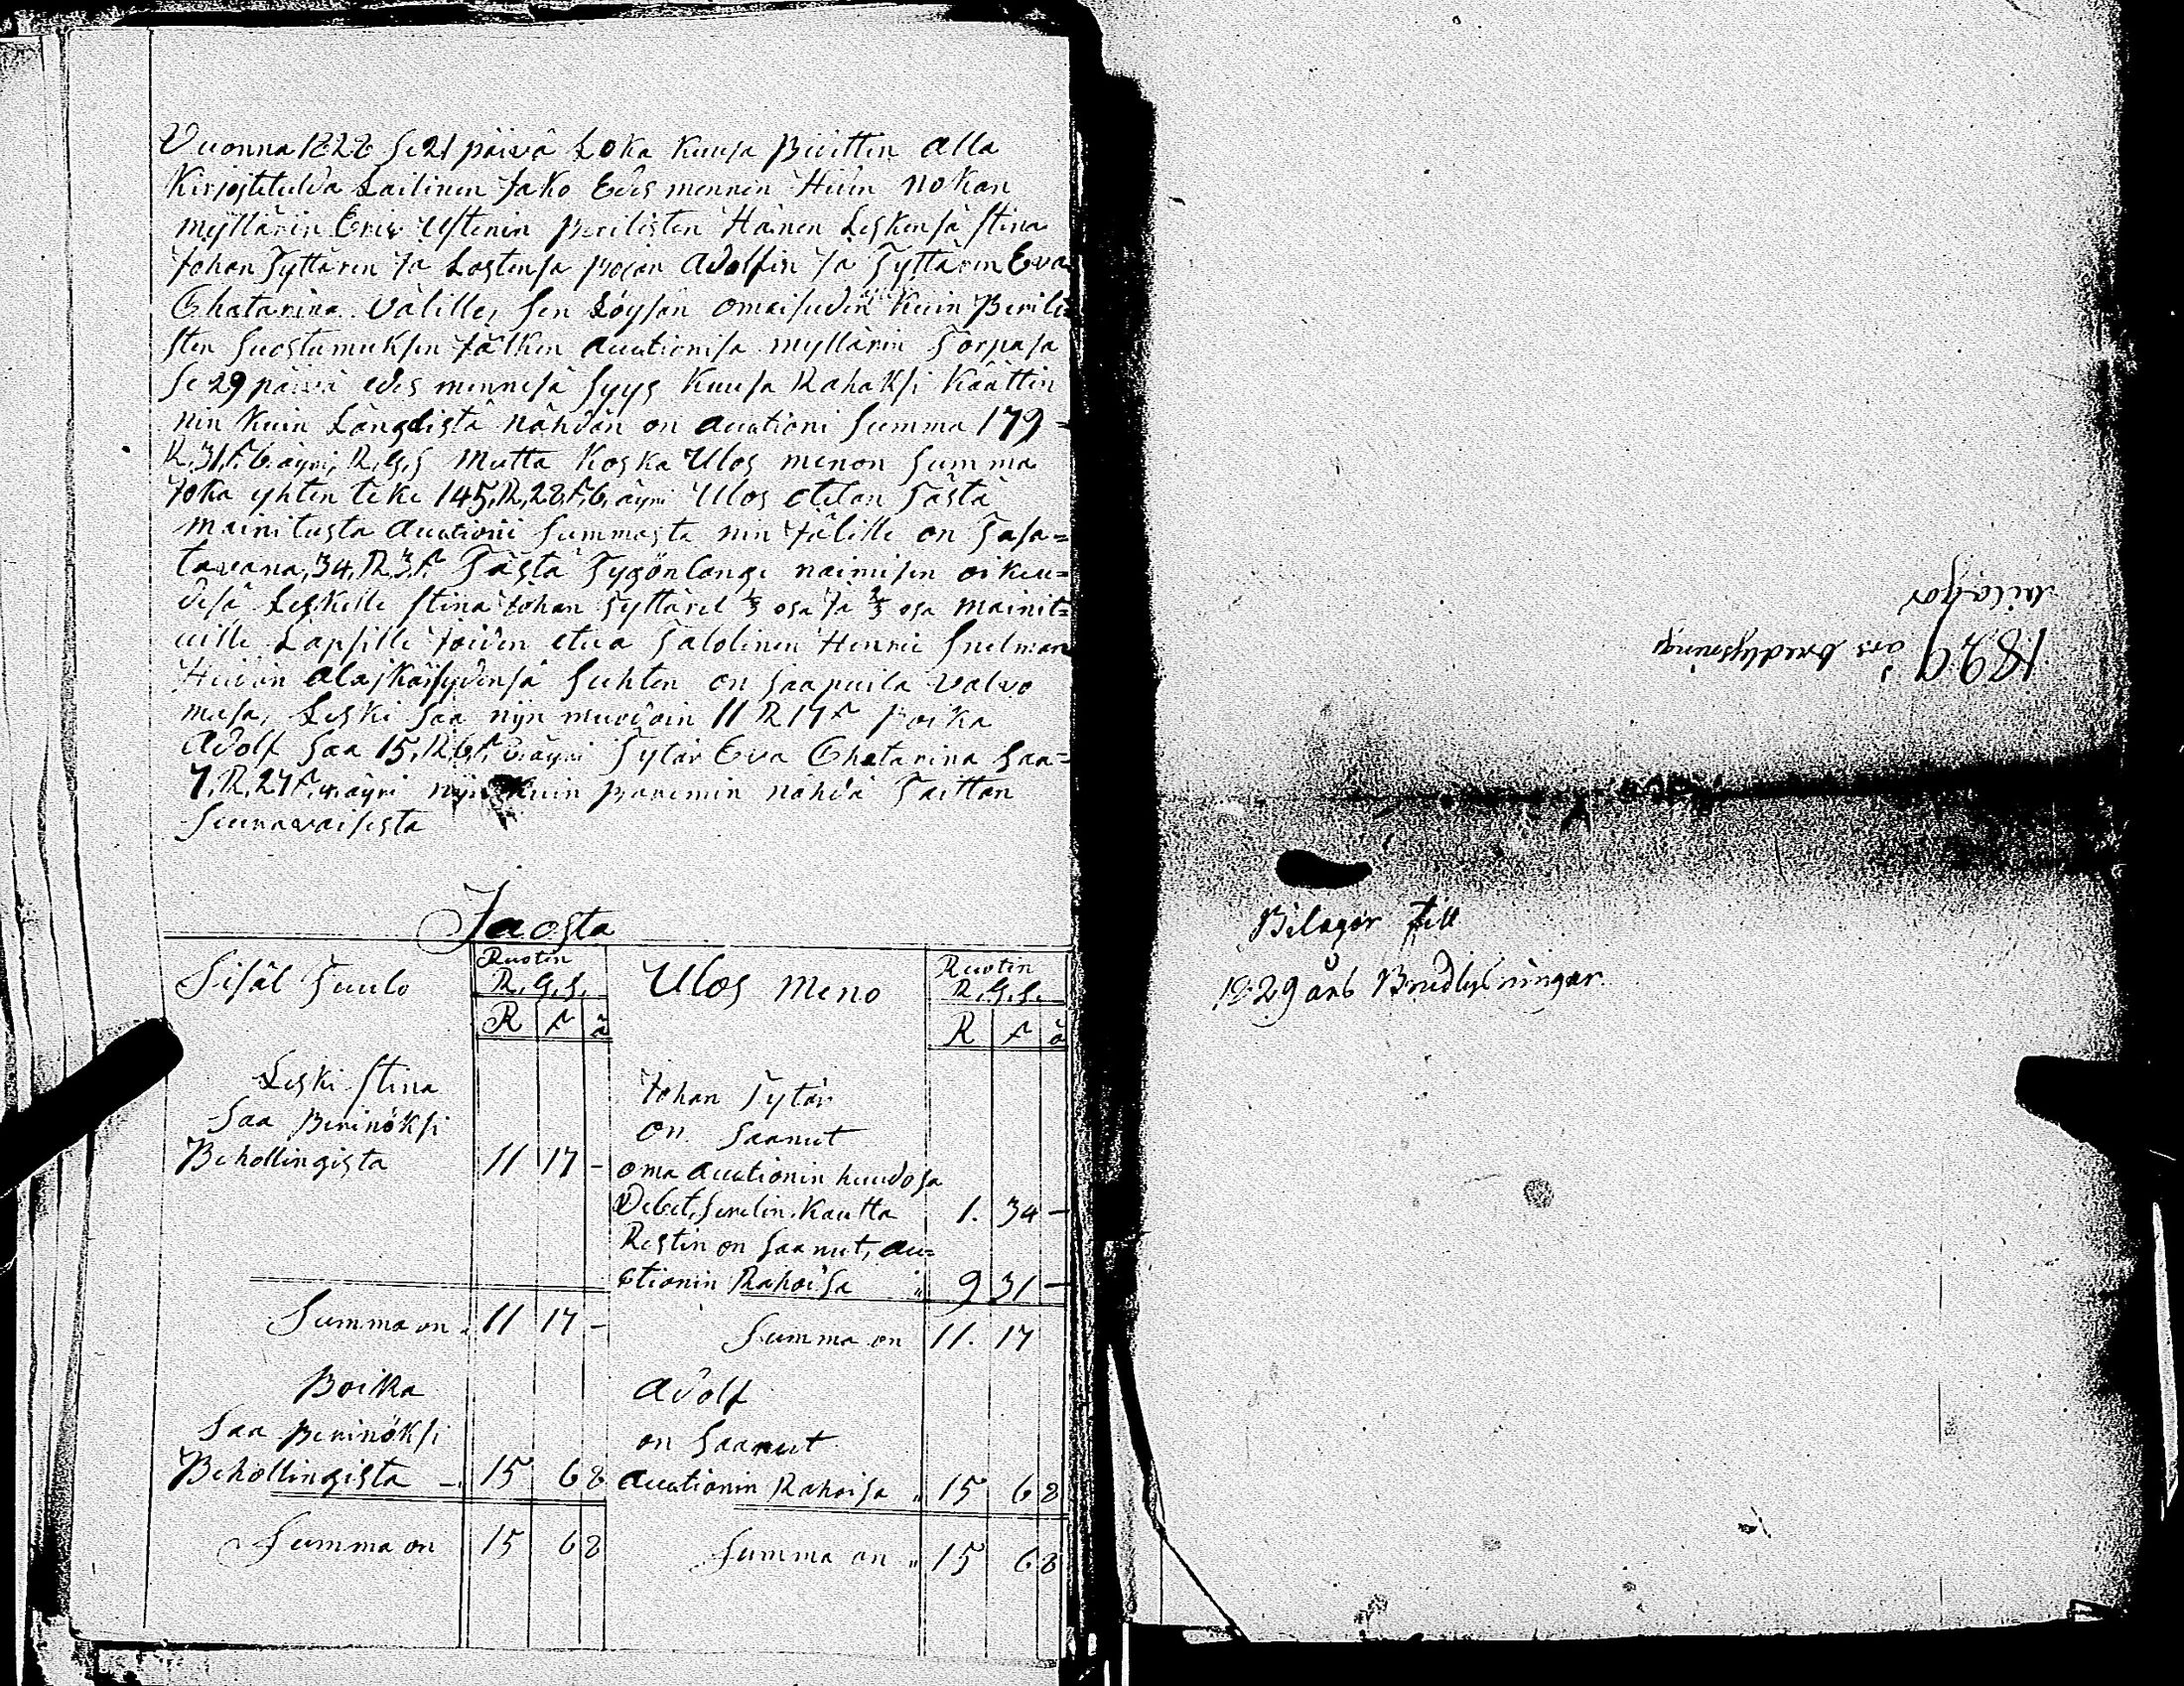 Vuonna 1828 se 21 päivä Loka kuusa Pidettin alla
kirjoitetulda Lailinen Jako Edes mennen Hiiden nokan
myllärin Eric Ustenin Perilisten Hänen Leskensä Stina
Johan Tyttären Ja Lastensa pojan Adolfin Ja Tyttären Eva
Chatarina Välille, sen Löysän omaisuden kuin Perilis
sten Suostumuksen Jälken Auctionisa myllärin Torpasa
se 29 päivä edes mennesä Syys kuusa Rahaksi käättin
nin kuin Längdistä nähdän on Auctioni Summa 179=
R. 31 s. 6 äyri, R.G.S Mutta koska Ulos menon Summa
Joka yhten teke 145, R, 28 s, 6, äyri Ulos otetan Tästä
mainitusta Auctioni Summasta nin Jälille on Jaja=
tavana, 34, R. 3 s. Tästä Tygönlange naimisen oikeu=
desa Leskelle Stina Johan Tyttärel ⅓ osa Ja ⅔ osa mainit=
uille Lapsille Joiden etua Talolinen Henric Snelman
Hiiden Alaskäisydensä Suhten on Saapuila Valvo
masa, Leski Saa nijn muodoin 11 R 17 s Poika
Adolf Saa 15, R, 6 s, 8 äyri Tytär Eva Chatarina Saa=
7, R, 27 s, 4 äyri nijn kuin paremin nähdä Taittan
Seuravaisesta
Jaosta
Sisäl Tuulo Ruotin R.G.S. Ulos Meno Ruotin R.G.S.
R s ä R s ä
Leski Stina Johan Tytär
Saa Perinöksi on Saanut
Behollingista 11 17 - oma Auctionin huudosa
Debet, Sedelin kautta 1. 34 -
Restin on Saanut, Au=
ctionin Rahoisa " 9 31 -
Summa on 11 17 - Summa on 11. 17
Poika Adolf
Saa Perinöksi on Saanut
Behollingista - 15 6 8 Auctionin Rahoisa " 15 6 8
Summa on 15 6 8 Summa on " 15 6 8
1829 års bredlysnings
bilagor
Bilagor till
1829 års Bredlysningar.